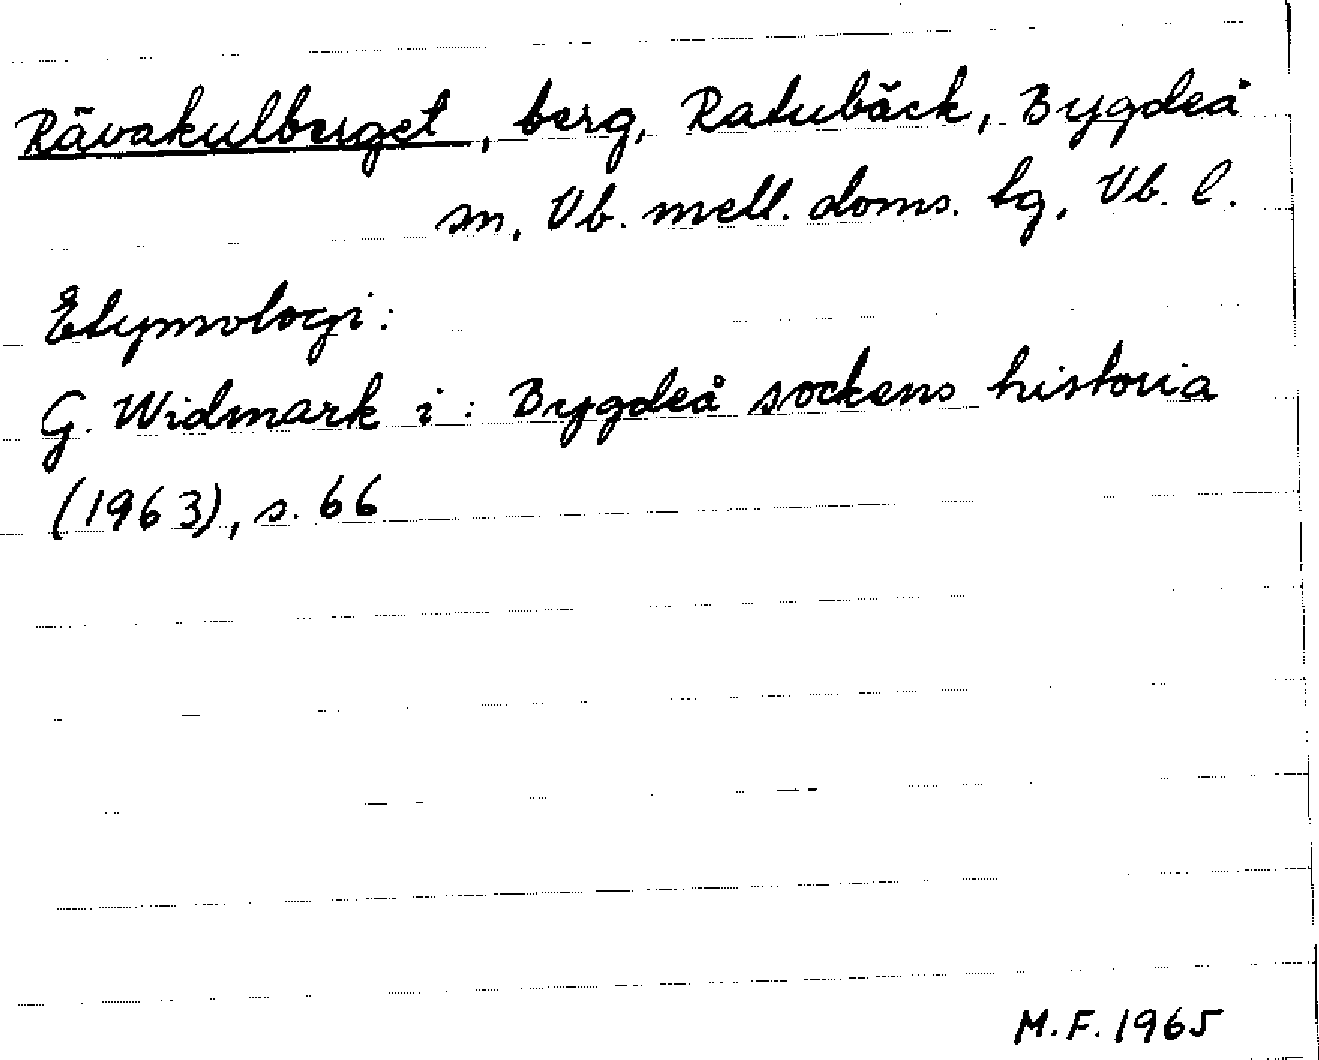 Rävakulberget, berg, Ratubäck, Bygdeå
sn, Vb. mell. doms. tg, Vb. l.
Etymologi:
G. Widmark i: Bygdeå sockens historia
(1963), s. 66
M.F. 1965